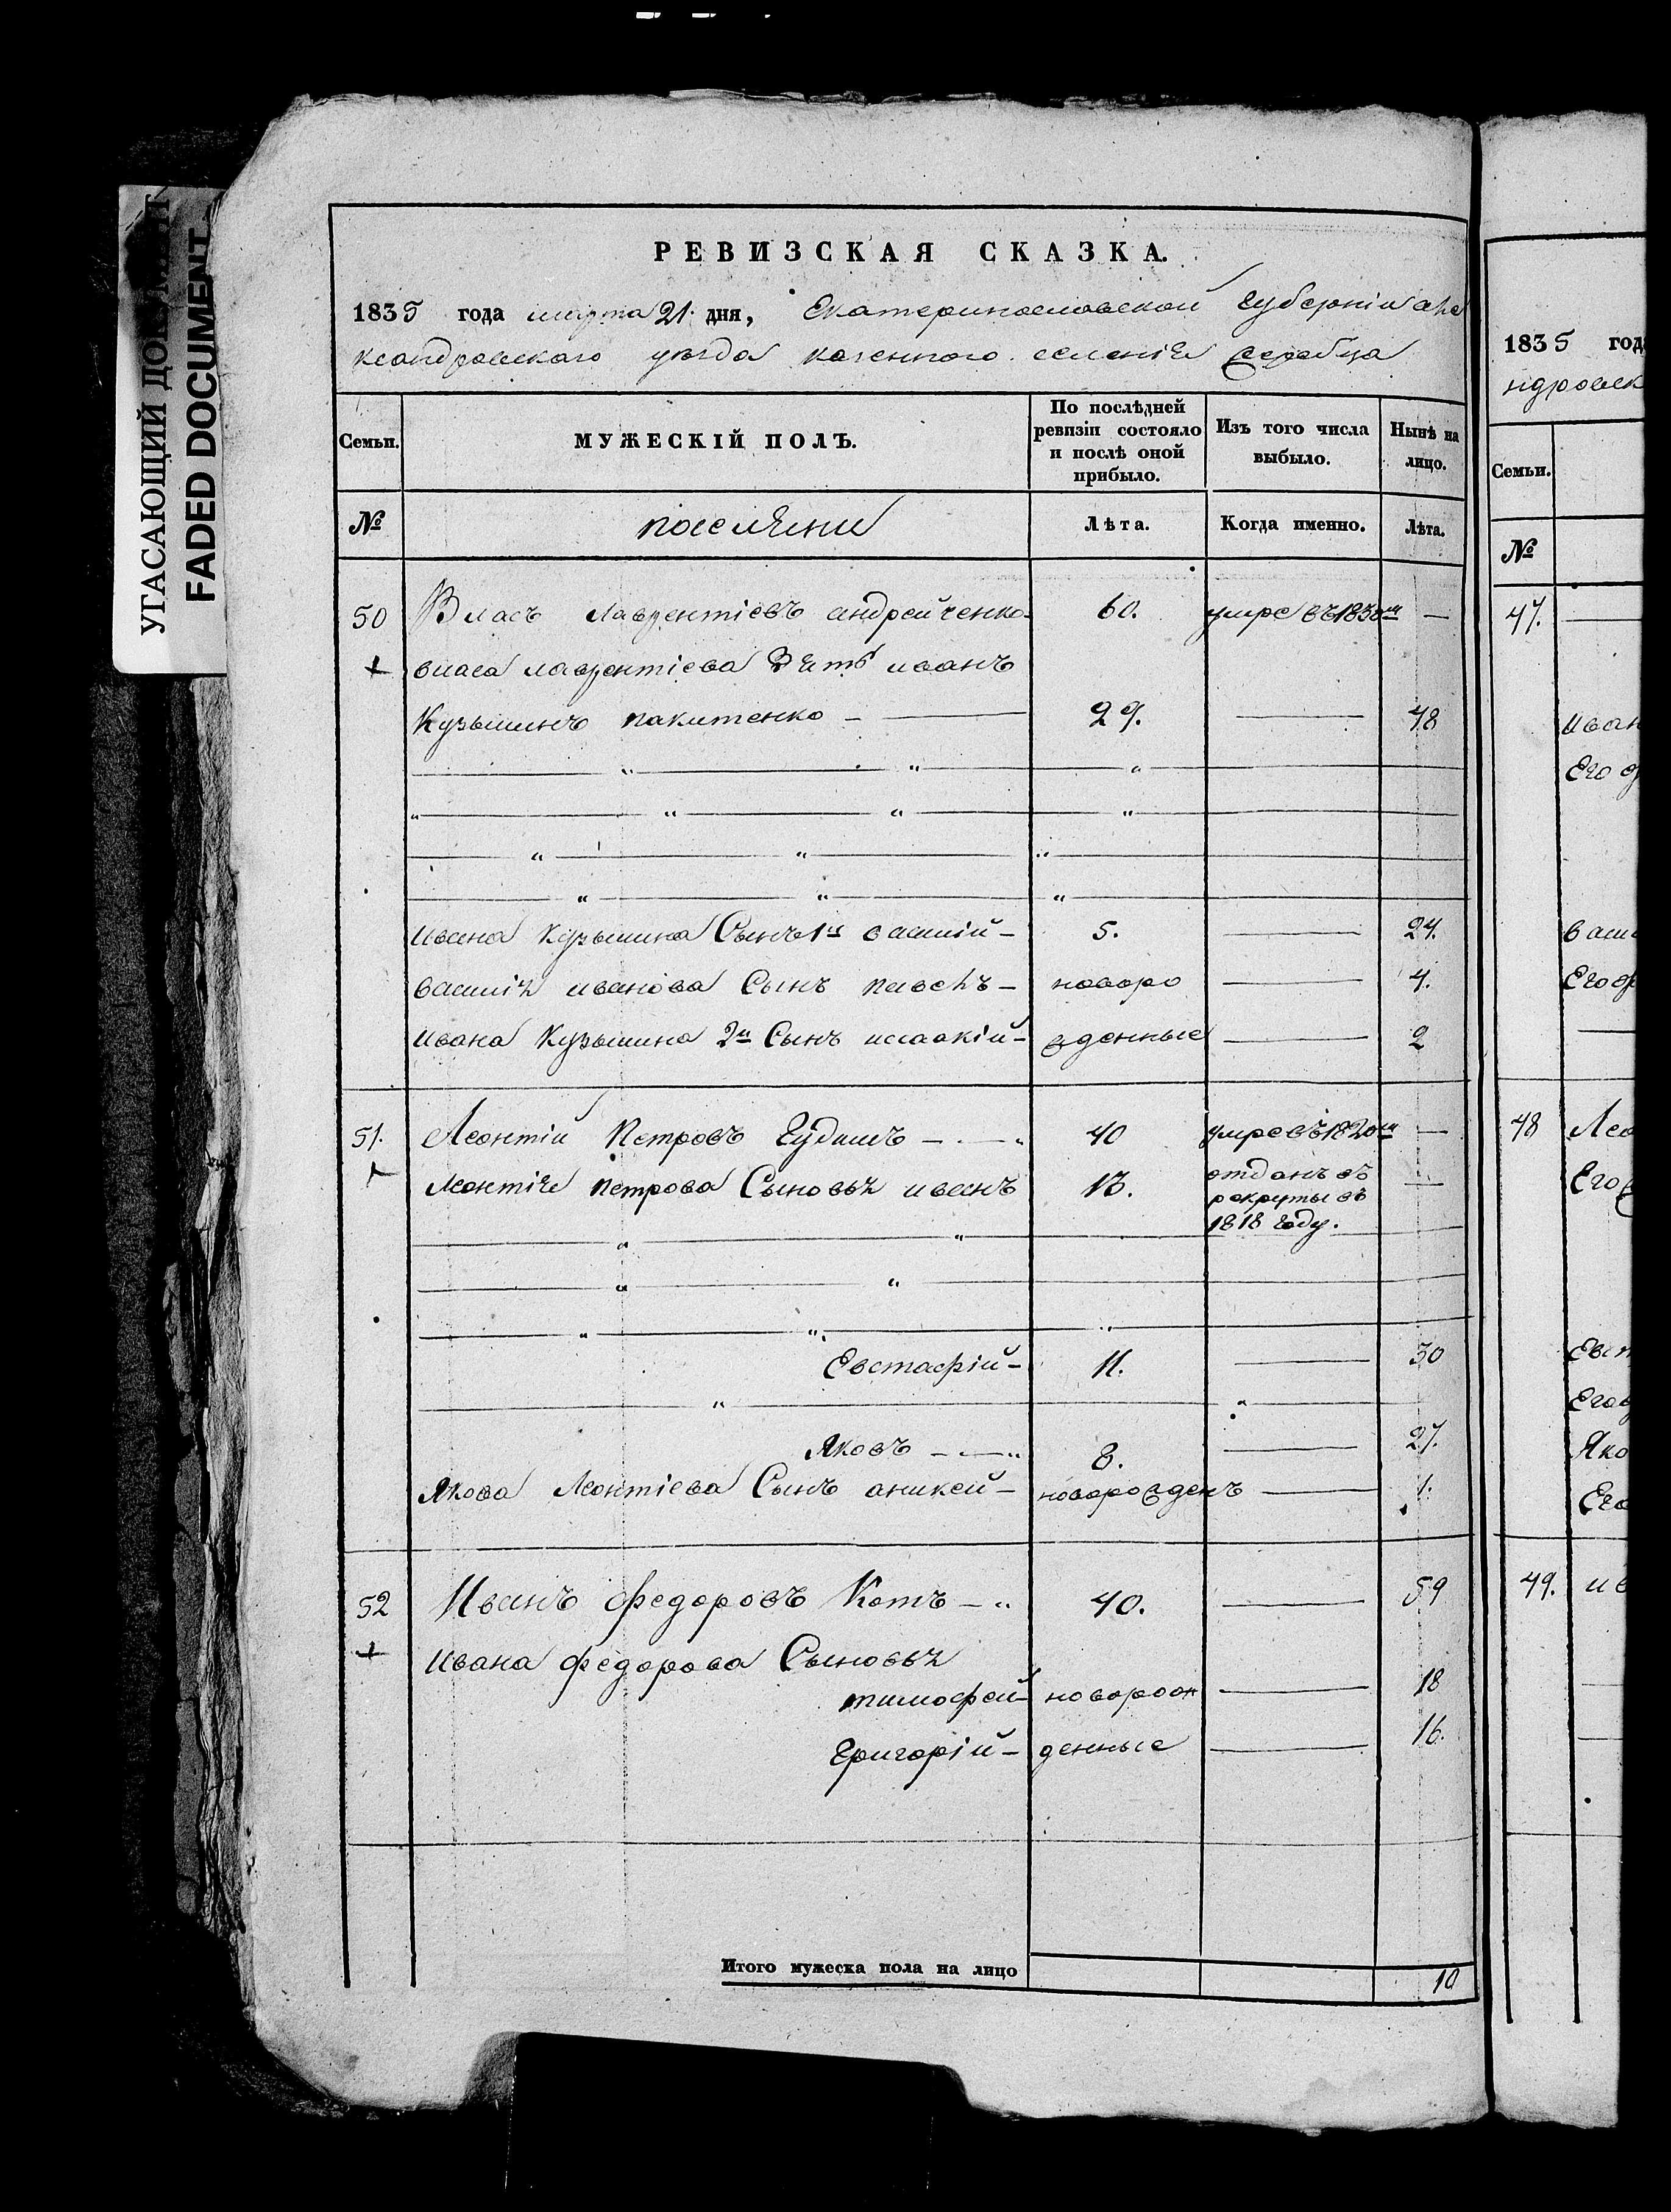 УГАСАЮЩИЙ ДОКУМЕНТ
FADED DOCUMENT
РЕВИЗСКАЯ СКАЗКА.
1835 года марта 21 дня, Екатеринославской губерніи але
ксандровскаго уѣзда казенного селенія
Семьи.
МУЖЕСКІЙ ПОЛЪ.
По послѣдней ревизіи состояло и послѣ оной прибыло.
Изъ того числа выбыло.
Нынѣ на лицо.
№
поселяни
Лѣта.
Когда именно.
Лѣта.
50 Власъ Лаврентіевъ андрейченко 60. умре въ 1830м —
власа лаврентіева Зять иванъ
Кузьминъ никитенко — 29. — 48
Ивана Кузьмина Сынъ 1й василій — 5. — 24.
василія иванова Сынъ павелъ — новоро — 4.
Ивана Кузьмина 2й Сынъ исаакій — жденные — 2
51. Леонтій Петровъ Гудимъ — 40 умре въ 1820м —
Леонтія петрова Сыновья иванъ 13. отданъ въ —
рекруты въ
1818 году.
Евстафій — 11. — 30
Яковъ — 8. — 27.
Якова Леонтіева Сынъ аникей — новорожденъ — 1.
52 Иванъ федоровъ Котъ — 40. — 59
Ивана федорова Сыновья
тимофей — новорож — 18
Григорій — денные — 16.
Итого мужеска пола на лицо 10
1835 года
ндровск
Семьи.
№
47.
Иван
Его
васи
Его
48 Лео
Его
Евст
Его
Яко
Его
49. ив